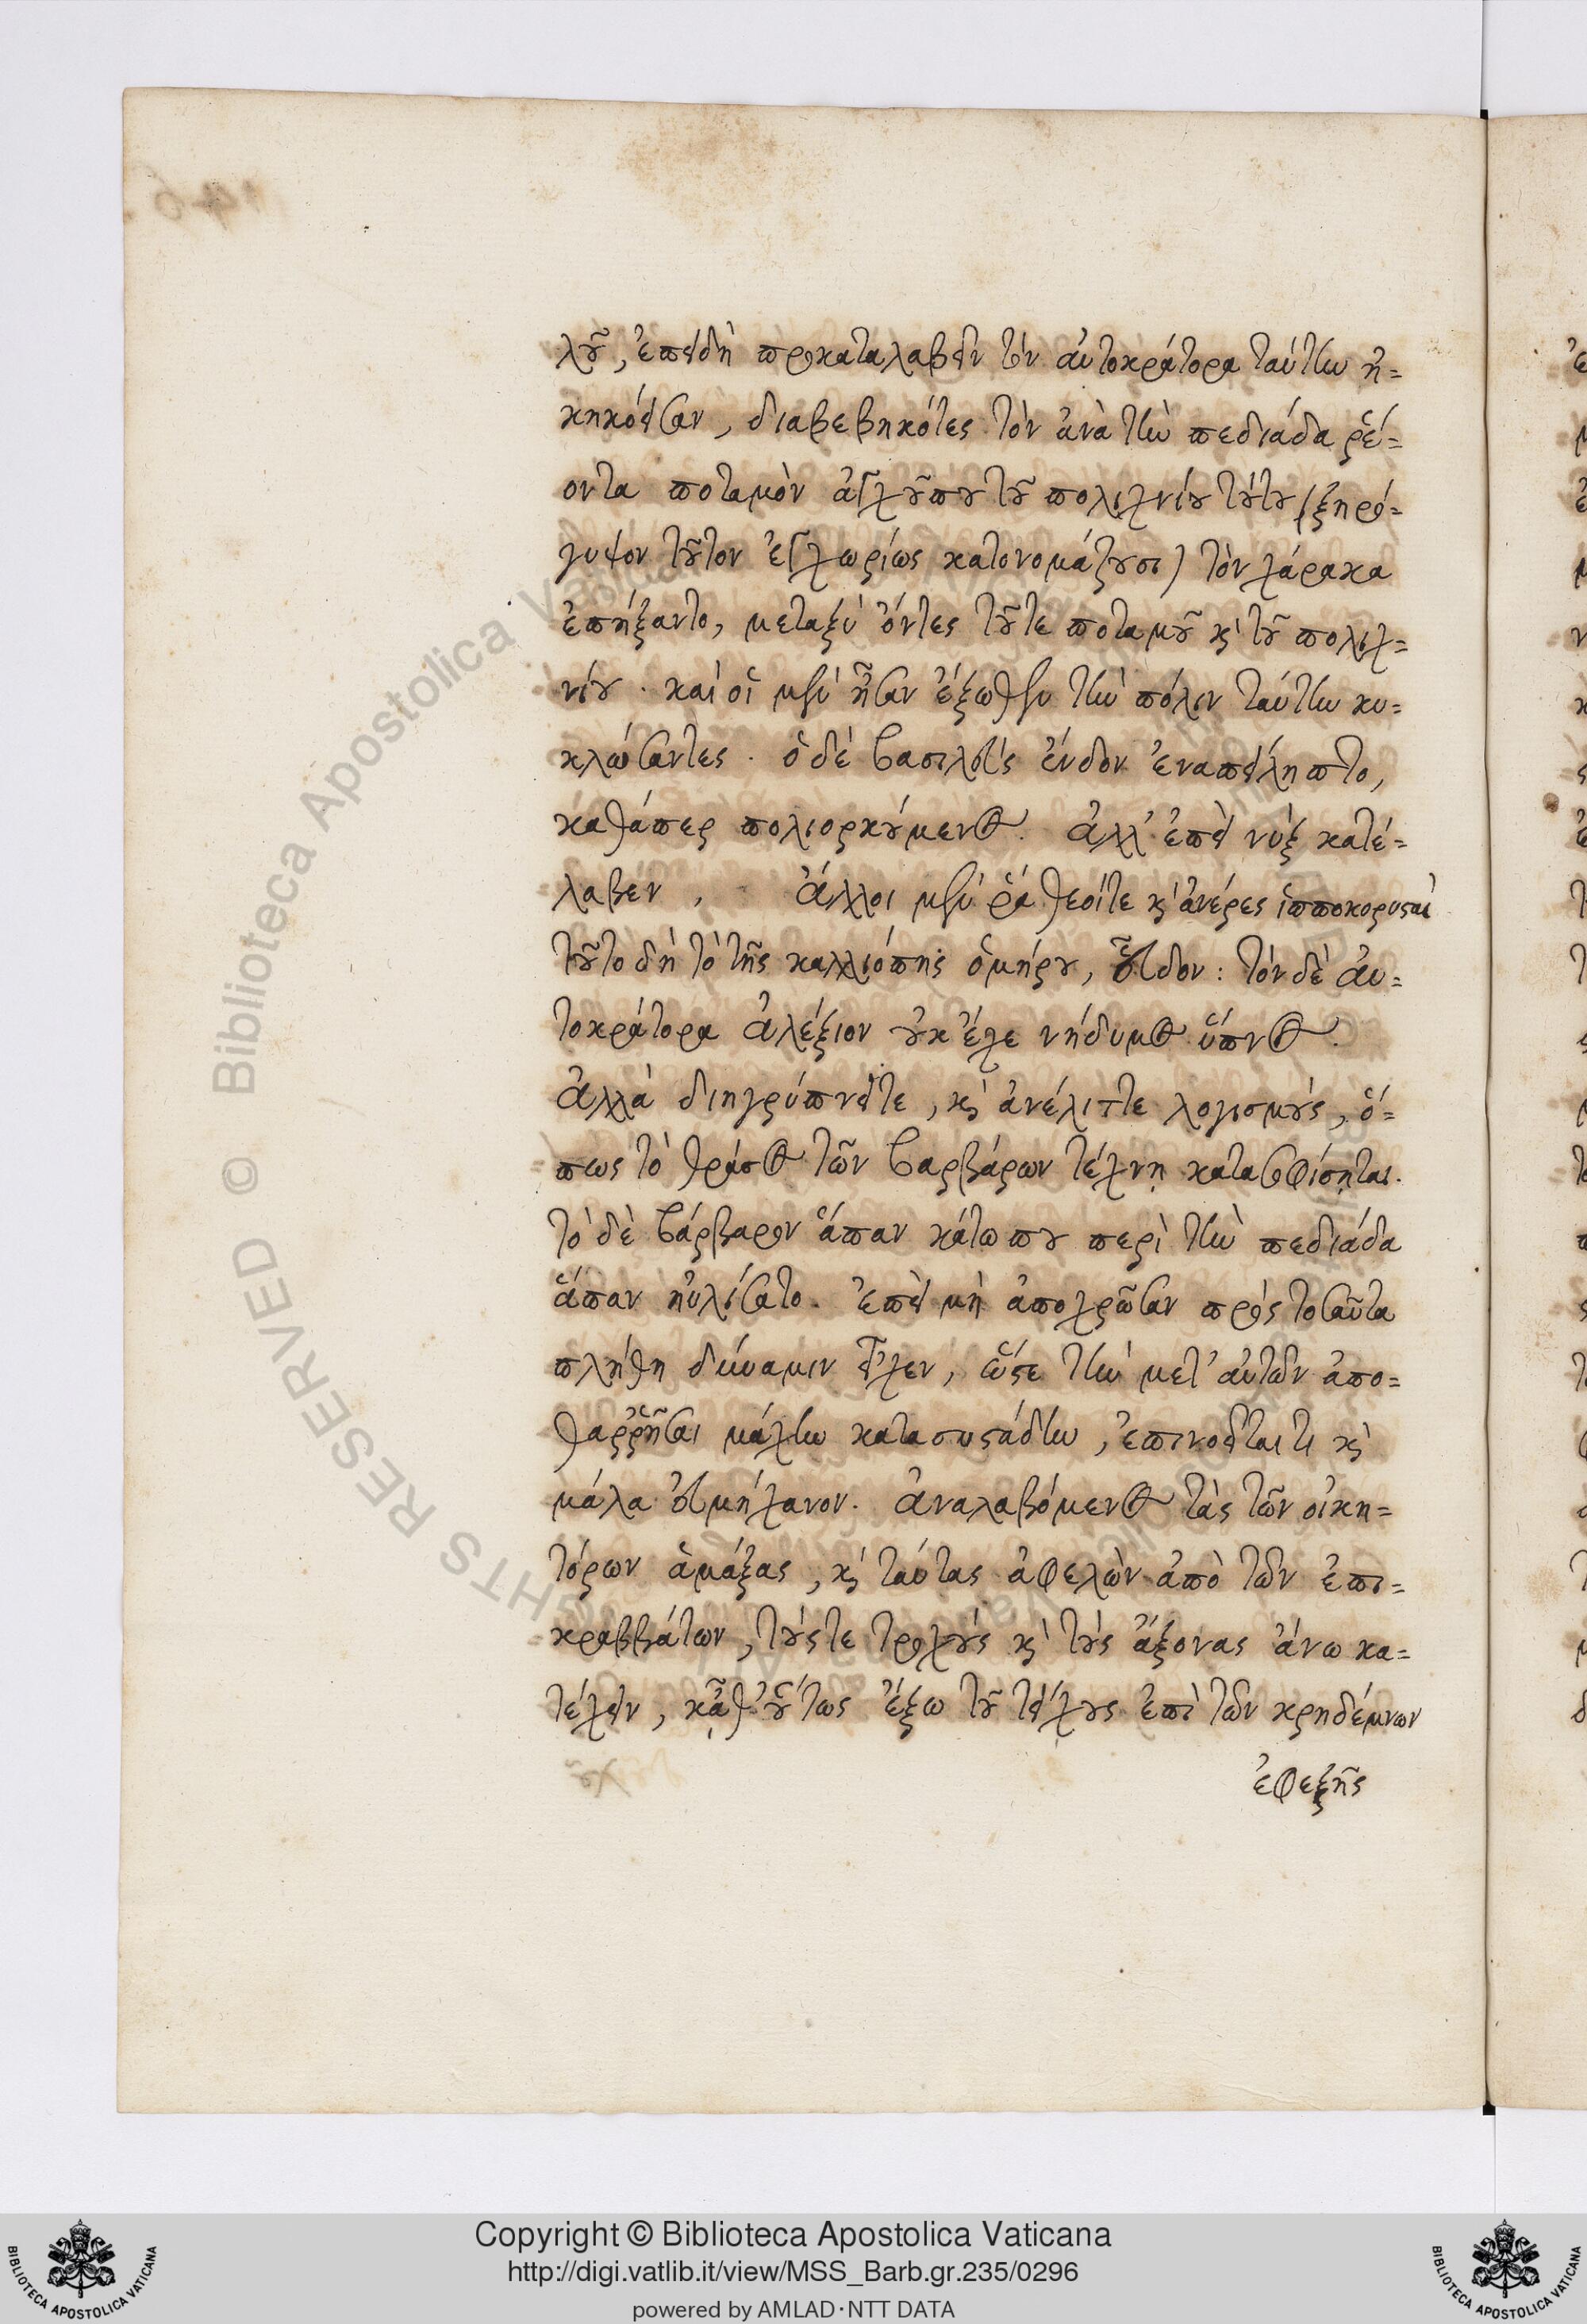 λοῦ, ἐπειδὴ προκαταλαβεῖν τὸν αὐτοκράτορα ταύτην ἠ=
κηκόεσαν, διαβεβηκότες τὸν ἀνὰ τὴν πεδιάδα ῥέ=
οντα ποταμὸν ἀγχοῦ που τοῦ πολιχνίου τούτου (ξηρό=
γυψον τοῦτον ἐγχωρίως κατονομάζουσι) τὸν χάρακα
ἐπήξαντο, μεταξὺ ὄντες τοῦτε ποταμοῦ κὶ τοῦ πολιχ=
νίου. καὶ οἱ μὲν ἦσαν ἔξωθεν τὴν πόλιν ταύτην κυ=
κλώσαντες. ὁ δὲ βασιλεὺς ἔνδον ἐναπείληπτο,
καθάπερ πολιορκούμενος. ἀλλ' ἐπεὶ νὺξ κατέ=
λαβεν, ἄλλοι μὲν ῥά θεοίτε κὶ ἀνέρες ἱπποκορυσταὶ
τοῦτο δὴ τὸ τῆς καλλιόπης ὁμήρου, εὗδον: τὸν δὲ αὐ=
τοκράτορα ἀλέξιον οὐκ ἔχε νήδυμος ὕπνος.
ἀλλὰ διηγρύπνειτε, κὶ ἀνέλιττε λογισμοὺς, ὅ=
πως τὸ θράσος τῶν βαρβάρων τέχνῃ κατασοφίσηται.
τὸ δὲ βάρβαρον ἅπαν κάτω που περὶ τὴν πεδιάδα
ἅπαν ηὐλίσατο. ἐπεὶ μὴ ἀποχρῶσαν πρὸς τοσαῦτα
πλήθη δύναμιν εἶχεν, ὥστε τὴν μετ' αὐτῶν ἀπο=
θαῤῥῆσαι μάχην κατασυστάδην, ἐπινοεῖται τι κὶ
μάλα εὐμήχανον. ἀναλαβόμενος τὰς τῶν οἰκη=
τόρων ἁμάξας, κὶ ταύτας ἀφελὼν ἀπὸ τῶν ἐπι=
κραββάτων, τούςτε τροχοὺς κὶ τοὺς ἄξονας ἄνω κα=
τέχειν, κᾆθ' οὕτως ἔξω τοῦ τείχους ἐπὶ τῶν κρηδέμνων
ἐφεξῆς
Copyright © Biblioteca Apostolica Vaticana
http://digi.vatlib.it/view/MSS_Barb.gr.235/0296
powered by AMLAD·NTT DATA